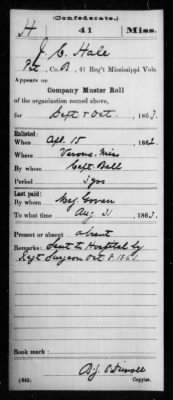 (Confederate.)
H 41 Miss.
J. C. Hale
Pvt, Co. B, 41 Reg't Mississippi Vols
Appears on
Company Muster Roll
of the organization named above,
for Sept & Oct, 1863.
Enlisted:
When Apl 15, 1862.
Where Verona, Miss
By whom Capt. Ball
Period 3 yrs
Last paid:
By whom Maj. Govan
To what time Aug 31, 1863.
Present or absent absent
Remarks: Sent to Hospital by
Regt Surgeon Oct 8. 1863.
Book mark:
(642)
Copyist.